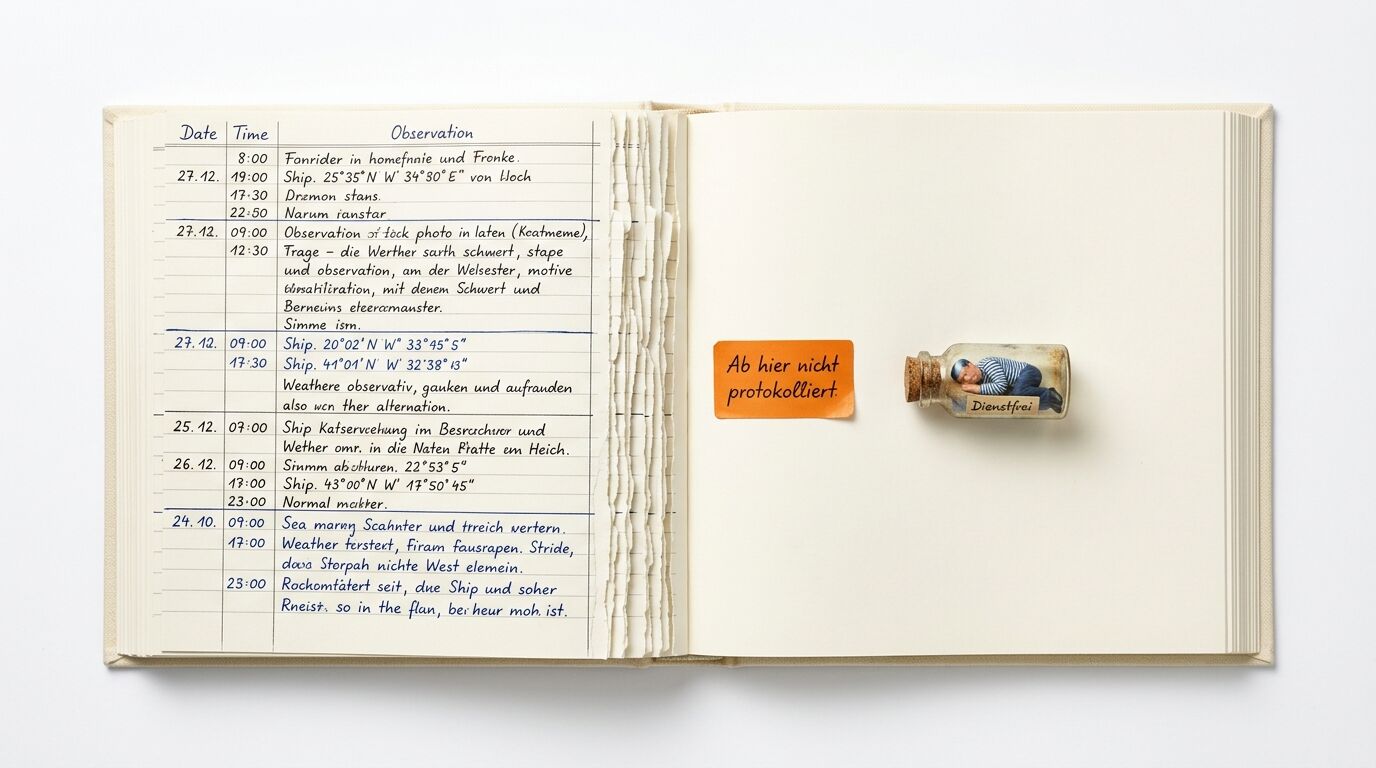 Date Time Observation
8:00 Fanrider in homefnie und Fronke.
27.12. 19:00 Ship. 25°35'N W' 34°80'E" von
17:30 Drzmon stans.
22:50 Narum ianstar
27.12. 09:00 Observation photo in laten (Keatmeme),
12:30 Trage – die Werther sarth schwert, stape
und observation, am der Welsester, motive
mit denem Schwert und
Berneins eteercmanster.
Simme ism.
27.12. 09:00 Ship. 20°02'N W' 33°45'5"
17:30 Ship. 41°01'N W' 32'38°13"
Weathere observativ, gauken und aufranden
also wcn ther alternation.
25.12. 07:00 Ship Katservcehung im und
Wether omr. in die Naten em Heich.
26.12. 09:00 Sinmm 22°53'5"
17:00 Ship. 43°00'N W' 17°50'45"
23:00 Normal
24.10. 09:00 Sea marny Scahnter und trreich wertern.
17:00 Weather Firam fausrapen. Stride,
Storpah nichte West elemein.
23:00 Rockomtätert seit, dne Ship und soher
so in the flan, bei heur moh. ist.
Ab hier nicht
protokolliert.
Dienstfrei